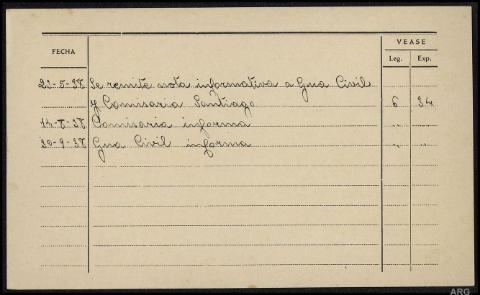 FECHA
VEASE
Leg. Exp.
23-5-38 Se remite nota informativa a Gua Civil
y Comisaria Santiago 6 34
14-8-38 Comisaria informa " "
30-9-38 Gua Civil informa " "
ARG